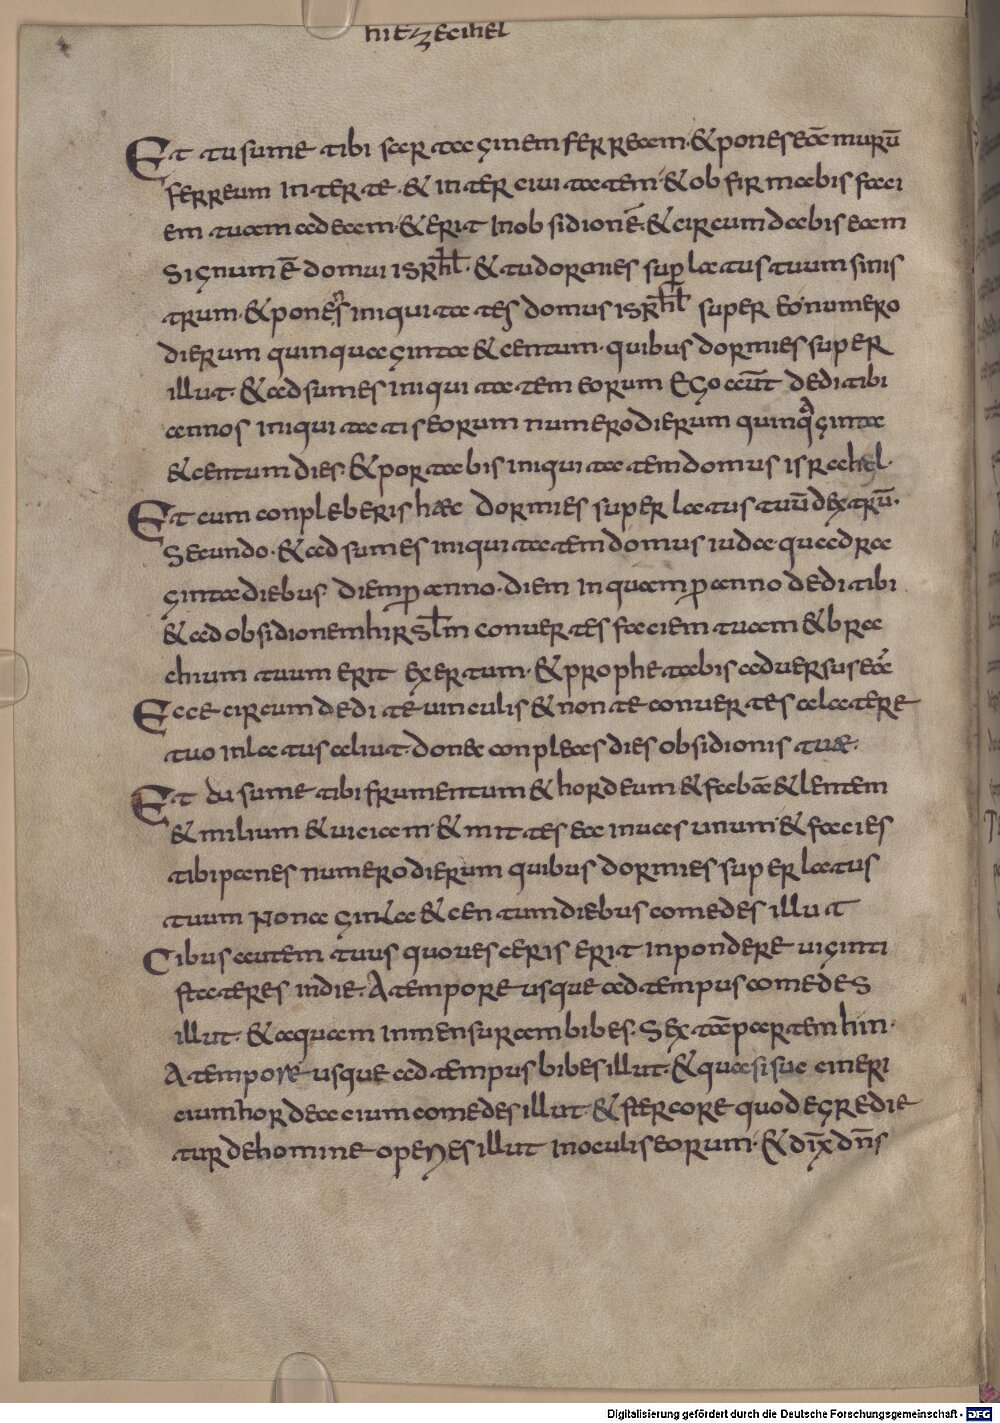 hiezecihel
Et tu sume tibi sartaginem ferream · & pones eā murū
ferreum inter te · & inter ciuitatem · & obfirmabis faci
em tuam ad eam · & erit in obsidionē · & circumdabis eam
signum ē domui isrhl̄ · & tu dormies sup̱ latus tuum sinis
trum · & pones iniquitates domus isrhl̄ super eo numero
dierum quinquaginta & centum · quibus dormies super
illut · & adsumes iniquitatem eorum Ego aūt dedi tibi
annos iniquitatis eorum numero dierum quinqaginta
& centum dies · & portabis iniquitatem domus israhel ·
Et cum conpleberis haec dormies super latus tuū dextrū ·
Secundo · & adsumes iniquitatem domus iudae quadra
ginta diebus diem p̱ anno · diem inquam p̱ anno dedi tibi
& ad obsidionem hirsl̄m conuertes faciem tuam & bra
chium tuum erit exertum · & prophetabis aduersus eā
Ecce circumdedi te uinculis & non te conuertes a latere
tuo in latus aliut · donec conpleas dies obsidionis tuae ·
Et du sume tibi frumentum & hordeum & fabā & lentem
& milium & uiciam · & mittes ea in uas unum · & facies
tibi panes numero dierum quibus dormies super latus
tuum Nonaginta & centum diebus comedes illut
Cibus autem tuus quo uesceris erit in pondere uiginti
stateres in die · A tempore usque ad tempus comedes
illut · & aquam in mensuram bibes · Sextā partem hin ·
A tempore usque ad tempus bibes illut · & quasi sub cineri
cium hordeacium comedes illut · & stercore quod egredie
tur de homine operies illut in oculis eorum · & dīx dn̄s
Digitalisierung gefördert durch die Deutsche Forschungsgemeinschaft - DFG